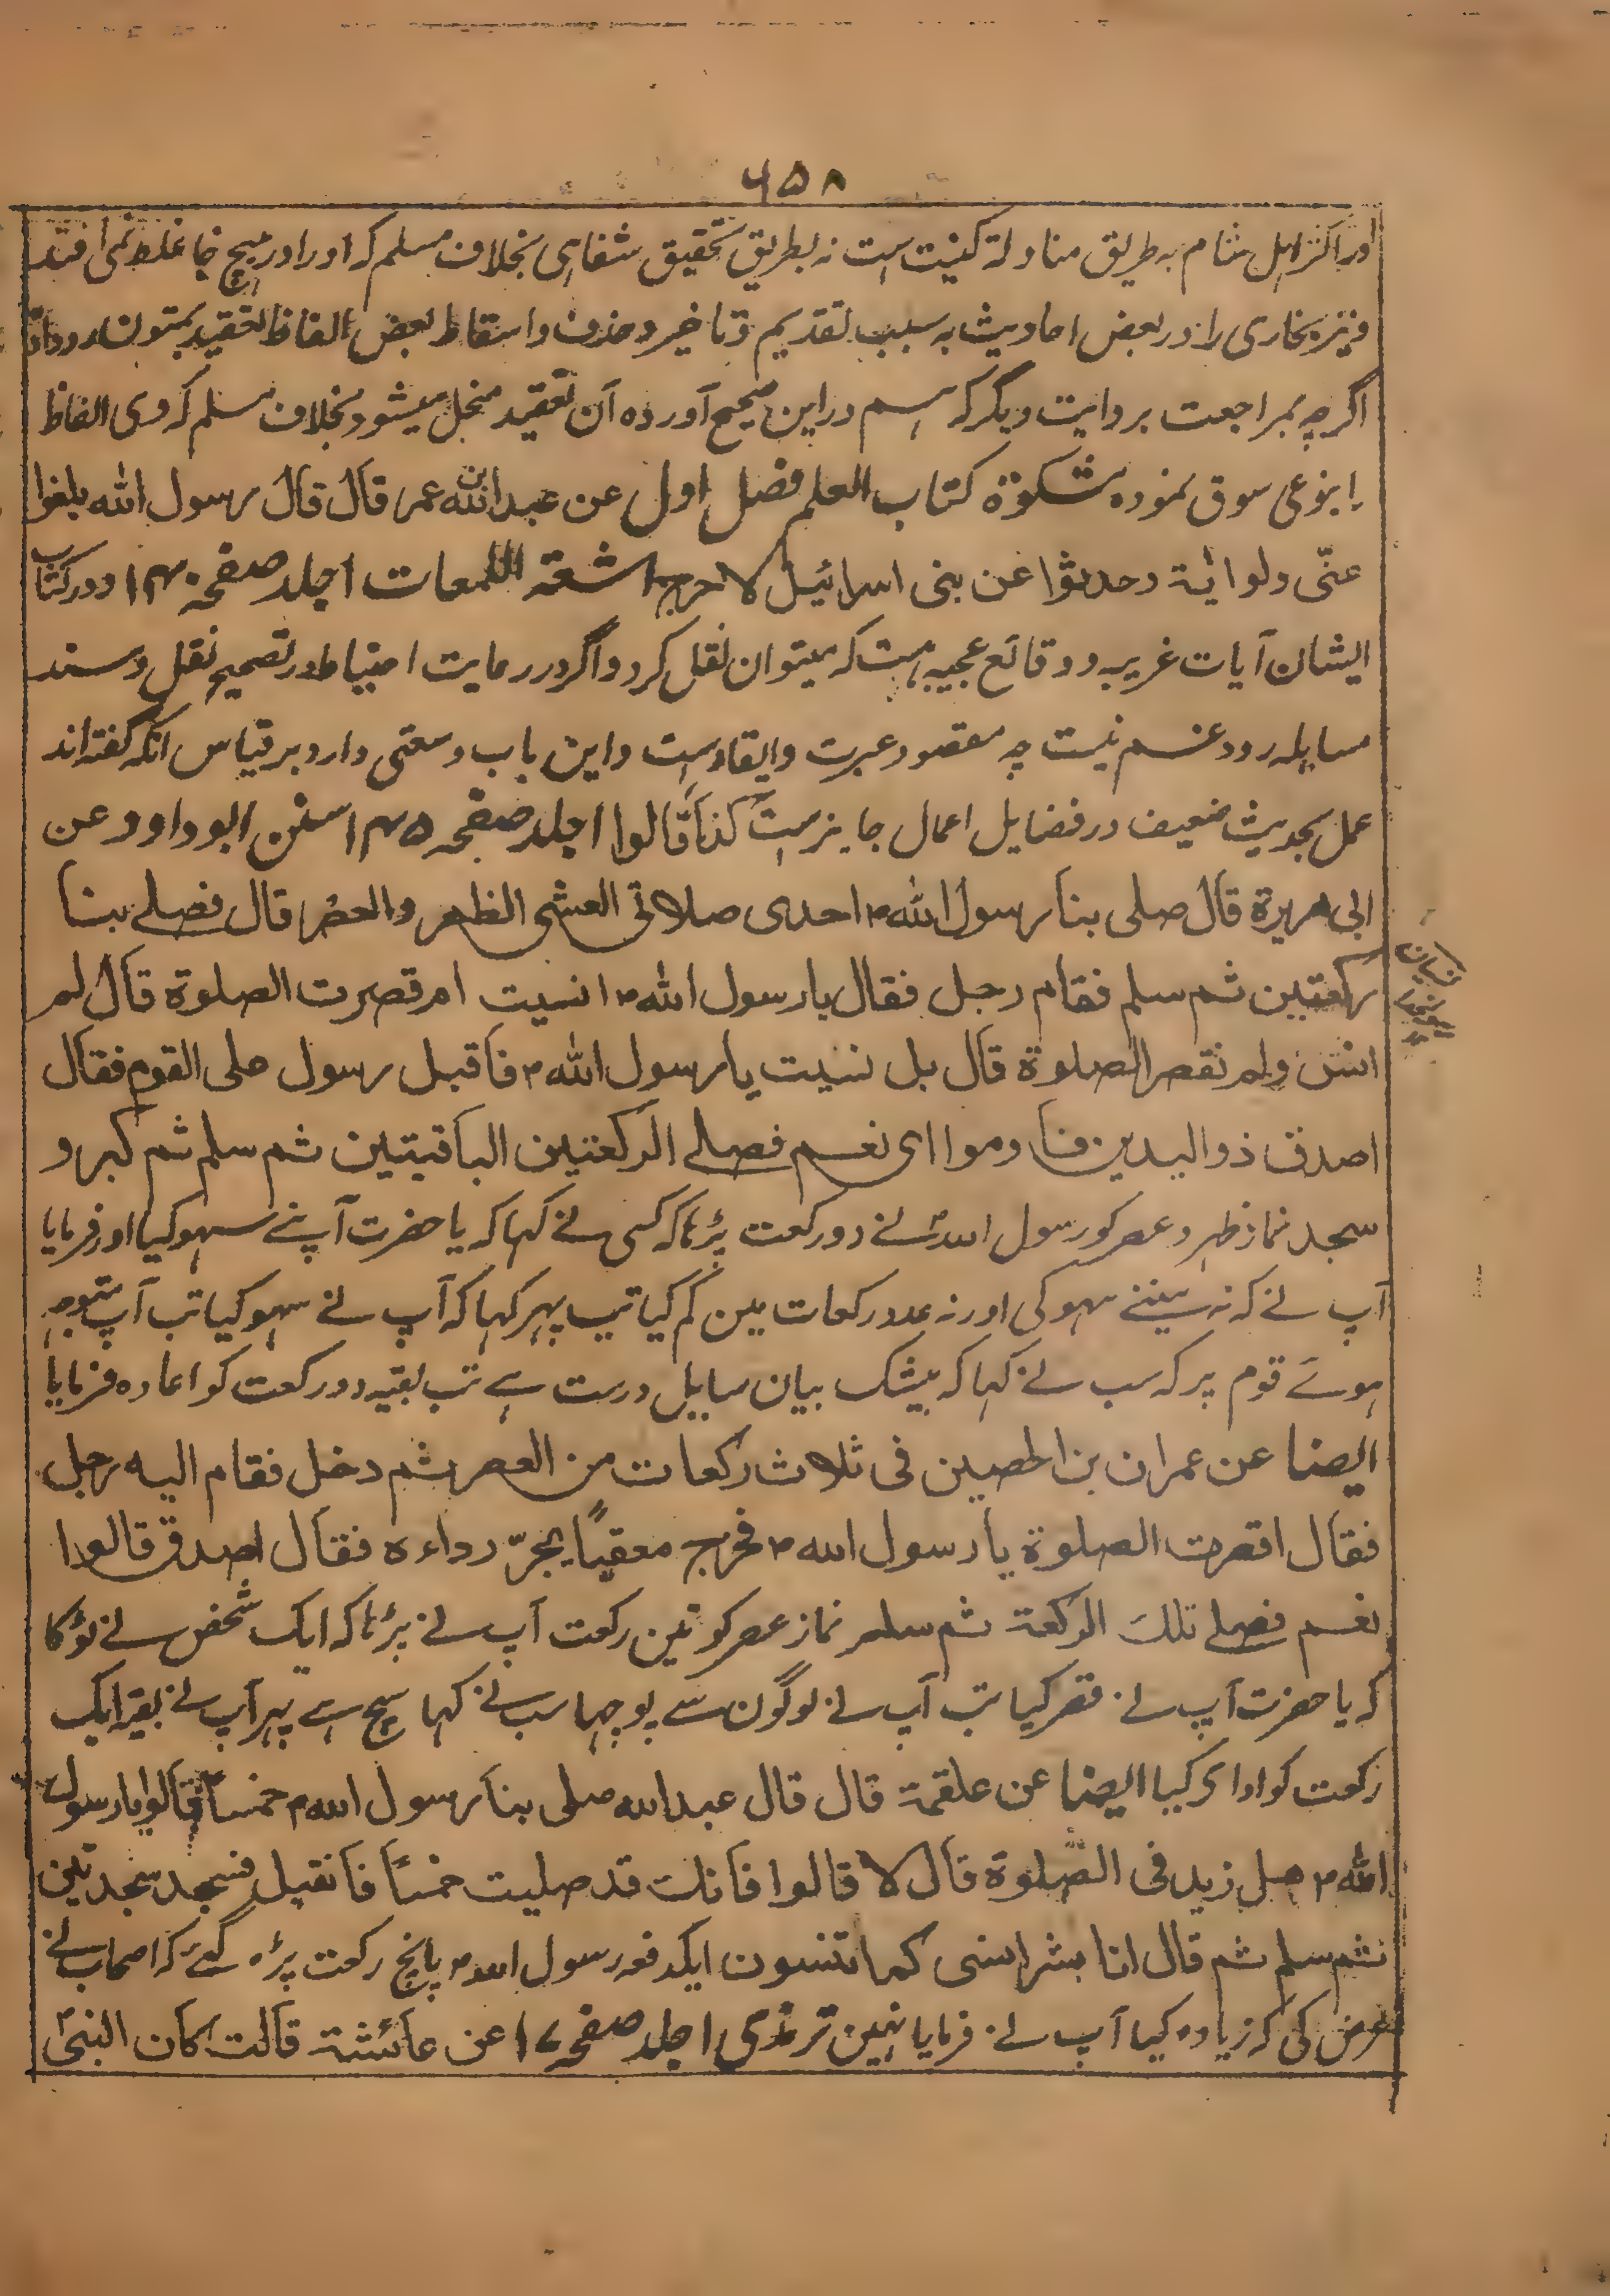 ۶۵۸
اور اکثر اہل شام بہ طریق مناولۃ کنیت ست نہ بطریق تحقیق شفاہی بخلاف مسلم کہ اورا در ہیچ جا غلط نمی افتد
و نیز بخاری را در بعض احادیث بہ سبب تقدیم و تاخیر و حذف و اسقاط بعض الفاظ تعقید بمتون
اگرچہ بمراجعت بروایت دیگر کہ ہم در این صحیح آوردہ آن تعقید منحل میشود بخلاف مسلم کہ وی الفاظ
را بنوعی سوق نمودہ مشکوۃ کتاب العلم فصل اول عن عبداللہ بن عمر قال قال رسول اللہ بلغوا
عنّی ولو ایٰۃ وحدثوا عن بنی اسرائیل لا حرج اشعۃ اللمعات ا جلد صفحہ ۱۴۰ و در کتاب
ایشان آیات غریبہ و وقائع عجیبہ ہست کہ میتوان نقل کرد و اگر در رعایت احتیاط در تصحیح نقل و سند
مساہلہ رود غم نیست چہ مقصود عبرت و ایقاد ست و این باب وسعتی دارد بر قیاس انکہ گفتہ اند
عمل بحدیث ضعیف در فضایل اعمال جایز ست کذا قالوا ا جلد صفحہ ۱۴۵ سنن ابو داود عن
ابی ھریرۃ قال صلی بنا رسول اللہ ۴ احدی صلاتی العشی الظھر والعصر قال فصلے بنا
رکعتین ثم سلم فقام رجل فقال یا رسول اللہ ۴ انسیت ام قصرت الصلوۃ قال لم
انس ولم تقصر الصلوۃ قال بل نسیت یا رسول اللہ ۴ فاقبل رسول علی القوم فقال
اصدق ذو الیدین فاوموا ای نعم فصلے الرکعتین الباقیتین ثم سلم ثم کبر و
سجد نماز ظہر و عصر کو رسول اللہؐ نے دو رکعت پڑہا کہ کسی نے کہا کہ یا حضرت آپنے سہو کیا اور فرمایا
آپ نے کہ نہ مینے سہو کی اور نہ عدد رکعات مین کم کیا تب پہر کہا کہ آپ نے سہو کیا تب آپ متوجہ
ہوئے قوم پر کہ سب نے کہا کہ بیشک بیان سایل درست ہے تب بقیہ دو رکعت کو اعادہ فرمایا
ایضا عن عمران بن الحصین فی ثلاث رکعات من العصر ثم دخل فقام الیہ رجل
فقال اقصرت الصلوۃ یا رسول اللہ ۴ فخرج مغضبًا یجرّ رداءہ فقال اصدق قالوا
نعم فصلے تلک الرکعۃ ثم سلم نماز عصر کو تین رکعت آپ نے پڑہا کہ ایک شخص نے ٹوکا
کہ یا حضرت آپ نے قصر کیا تب آپ نے لوگون سے پوچہا سب نے کہا سچ ہے پہر آپ نے بقیہ ایک
رکعت کو ادا کیا ایضا عن علقمۃ قال قال عبد اللہ صلی بنا رسول اللہ ۴ خمسا قالوا یا رسول
اللہ ۴ ھل زید فی الصلوۃ قال لا قالوا فانک قد صلیت خمسًا فانفتل فسجد سجدتین
ثم سلم ثم قال انا بشر انسی کما تنسون ایکدفعہ رسول اللہ ۴ پانچ رکعت پڑہ گئے کہ اصحاب نے
عرض کی کہ زیادہ کیا آپ نے فرمایا نہین ترمذی ا جلد صفحہ ۱۷ عن عائشۃ قالت کان النبیؐ